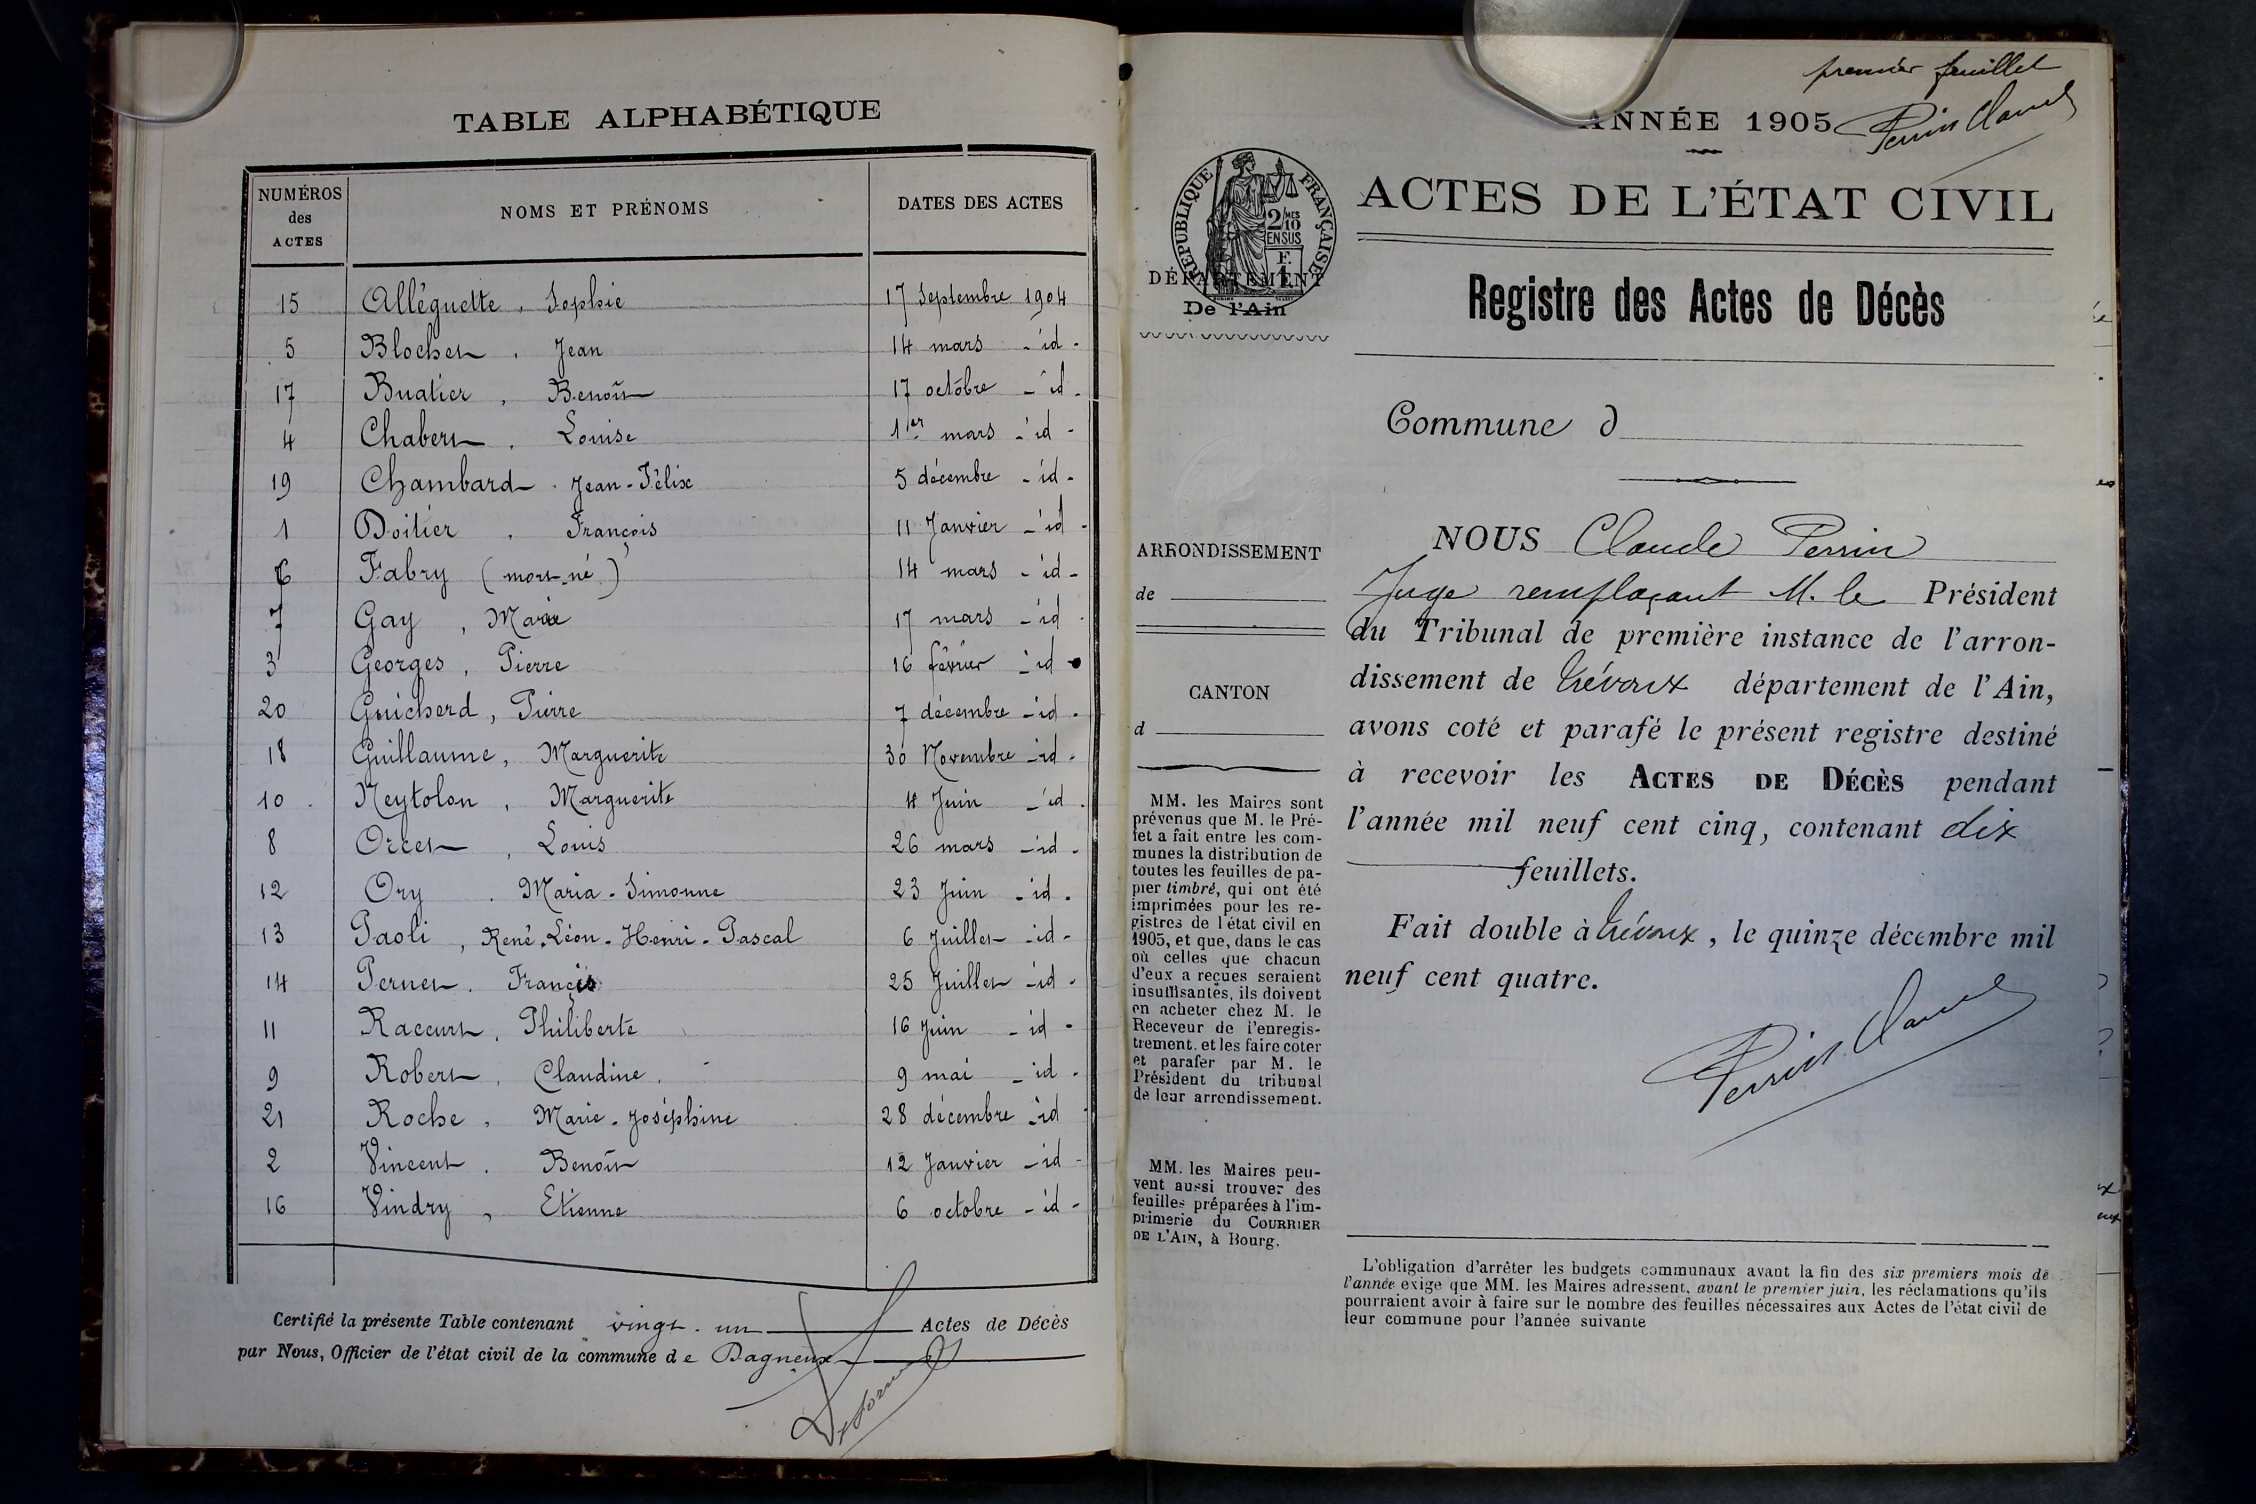 TABLE ALPHABÉTIQUE
NUMÉROS des ACTES | NOMS ET PRÉNOMS | DATES DES ACTES
15 Alléguette, Sophie 17 Septembre 1904
5 Blochet, Jean 14 mars - id -
17 Buatier, Benoît 17 octobre - id -
4 Chabert, Louise 1er mars - id -
19 Chambard, Jean-Félix 5 décembre - id -
1 Doitier, François 11 Janvier - id -
6 Fabry (mort-né) 14 mars - id -
7 Gay, Marie 17 mars - id -
3 Georges, Pierre 16 février - id -
20 Guicherd, Pierre 7 décembre - id -
18 Guillaume, Marguerite 30 Novembre - id -
10 Neytolon, Marguerite 4 Juin - id -
8 Orcet, Louis 26 mars - id -
12 Ory, Maria-Simonne 23 Juin - id -
13 Paoli, René-Léon-Henri-Pascal 6 Juillet - id -
14 Pernet, Francis 25 Juillet - id -
11 Raccurt, Philiberte 16 Juin - id -
9 Robert, Claudine 9 mai - id -
21 Roche, Marie-Joséphine 28 décembre - id
2 Vincent, Benoît 12 Janvier - id -
16 Vindry, Etienne 6 octobre - id -
Certifié la présente Table contenant vingt-un Actes de Décès
par Nous, Officier de l'état civil de la commune de Dagneux
premier feuillet
ANNÉE 1905
Perrin Claude
ACTES DE L'ÉTAT CIVIL
RÉPUBLIQUE FRANÇAISE
2/10MES
EN SUS
1 F.
DÉPARTEMENT
De l'Ain
Registre des Actes de Décès
Commune d
ARRONDISSEMENT
de
CANTON
d
MM. les Maires sont
prévenus que M. le Pré-
fet a fait entre les com-
munes la distribution de
toutes les feuilles de pa-
pier timbré, qui ont été
imprimées pour les re-
gistres de l'état civil en
1905, et que, dans le cas
où celles que chacun
d'eux a reçues seraient
insuffisantes, ils doivent
en acheter chez M. le
Receveur de l'enregis-
trement. et les faire coter
et parafer par M. le
Président du tribunal
de leur arrondissement.
MM. les Maires peu-
vent aussi trouver des
feuilles préparées à l'im-
primerie du COURRIER
DE L'AIN, à Bourg.
NOUS Claude Perrin
Juge remplaçant M. le Président
du Tribunal de première instance de l'arron-
dissement de Trévoux département de l'Ain,
avons coté et parafé le présent registre destiné
à recevoir les ACTES DE DÉCÈS pendant
l'année mil neuf cent cinq, contenant dix
feuillets.
Fait double à Trévoux, le quinze décembre mil
neuf cent quatre.
Perrin Claude
L'obligation d'arrêter les budgets communaux avant la fin des six premiers mois de
l'année exige que MM. les Maires adressent, avant le premier juin, les réclamations qu'ils
pourraient avoir à faire sur le nombre des feuilles nécessaires aux Actes de l'état civil de
leur commune pour l'année suivante